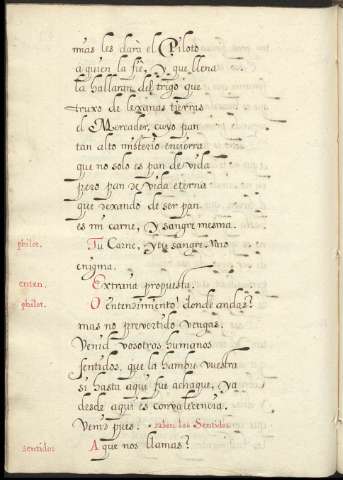 mas les darà el Piloto
a quien la fiè, y que llena
la hallaran del trigo que
truxo de lexanas tierras
el Mercader, cuyo pan
tan alto misterio encierra
que no solo es pan de vida
pero pan de vida eterna
que dexando de ser pan
es mi carne, y sangre mesma.
philot. Tu Carne, y tu sangre.
enigma.
enten. Extraña propuesta.
philot. O entendimiento! donde andas?
mas no prevertido vengas.
Venid vosotros humanos
sentidos, que la hambre vuestra
si hasta aqui fue achaque, ya
desde aqui es convalecencia.
Venis pues? salen los Sentidos
sentidos A que nos llamas?